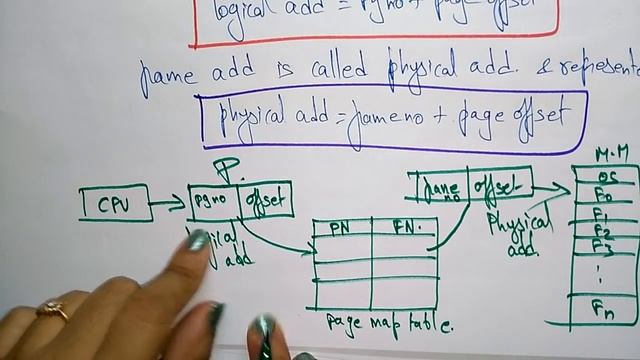 logical add = pg no + page offset
frame add is called physical add. & represente
physical add = frame no + page offset
P.
M.M
CPU
pg no
offset
frame no
offset
OS
F0
F1
F2
F3
Fn
logical add
physical add.
PN
FN.
page map table.